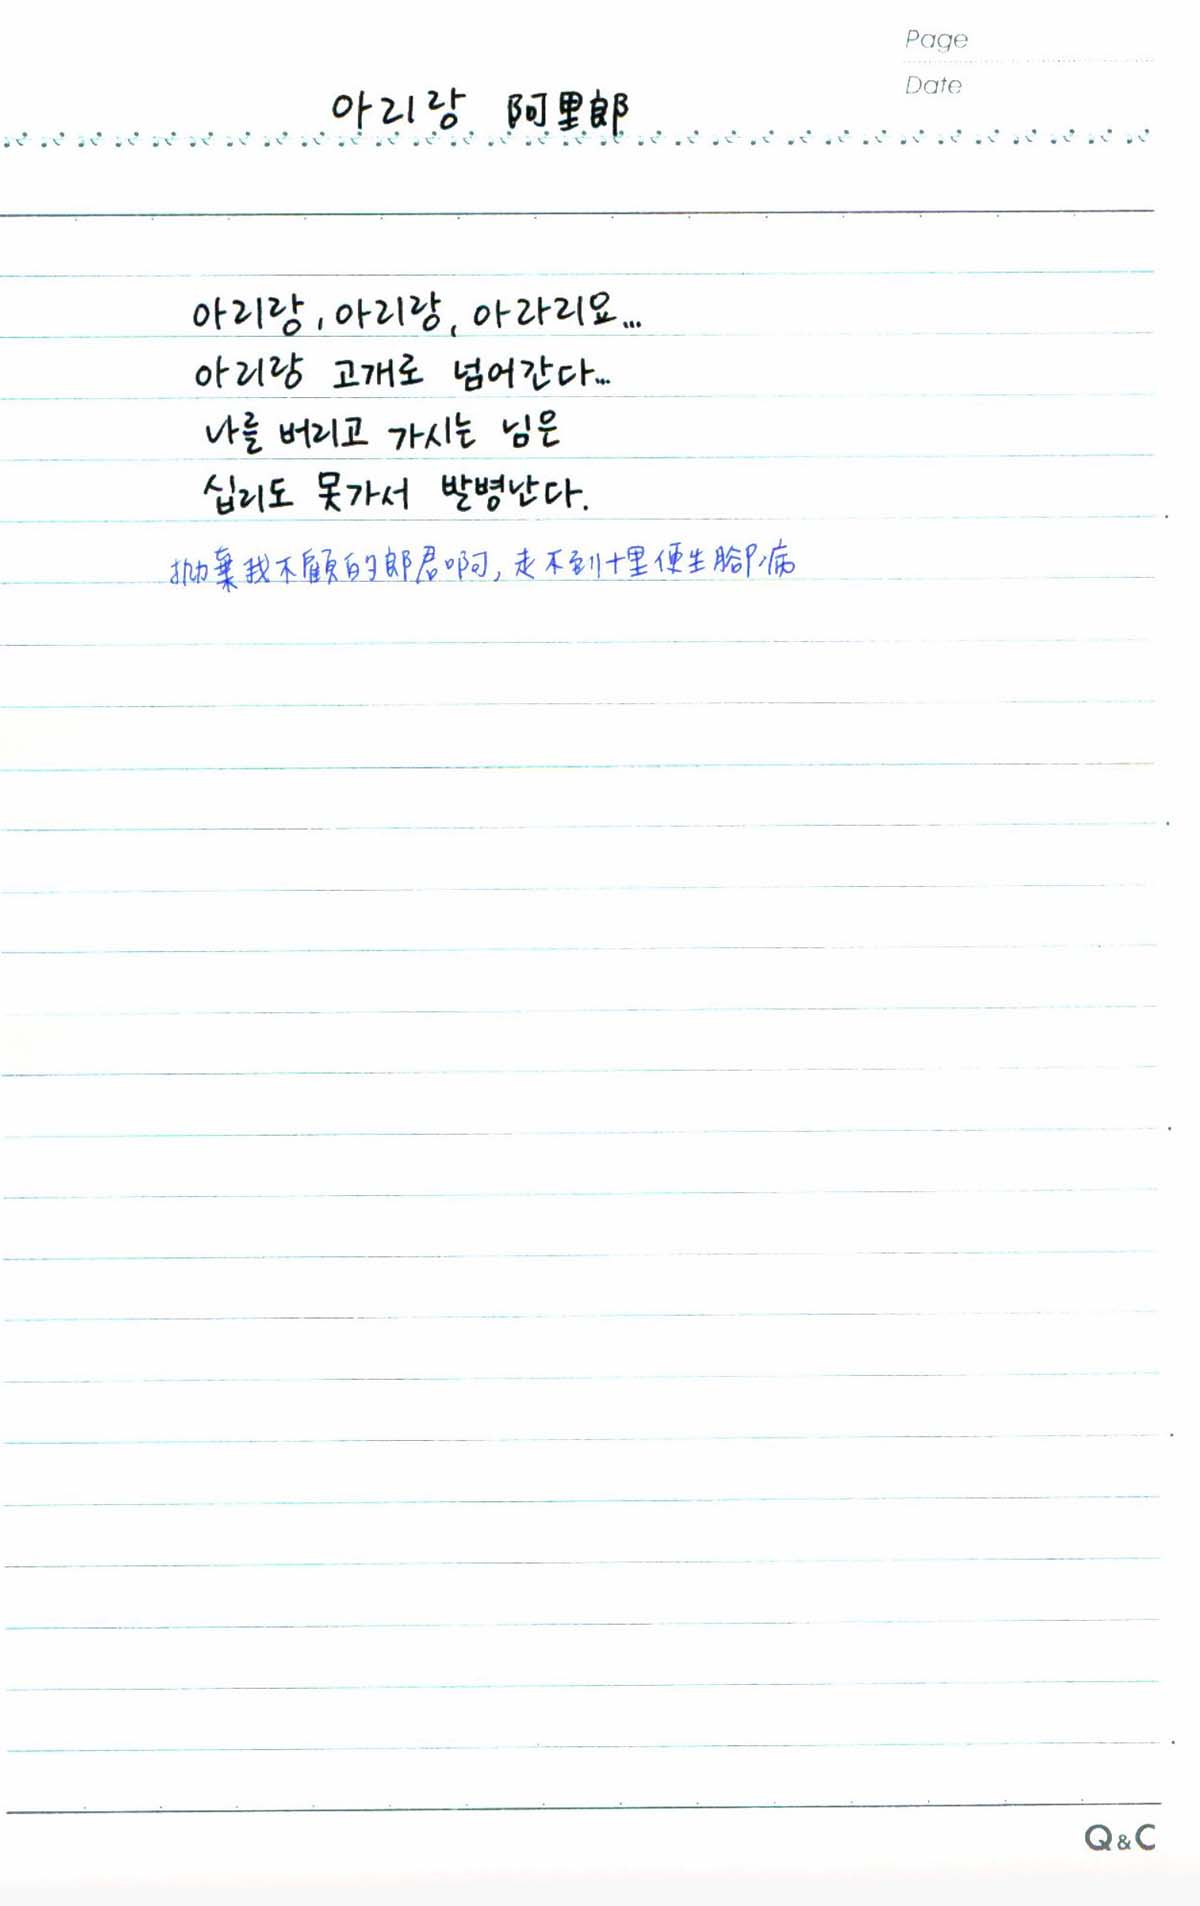 Page
Date
아리랑 阿里郎
아리랑, 아리랑, 아라리요...
아리랑 고개로 넘어간다...
나를 버리고 가시는 님은
십리도 못가서 발병난다.
拋棄我不顧的郎君啊, 走不到十里便生腳病
Q&C